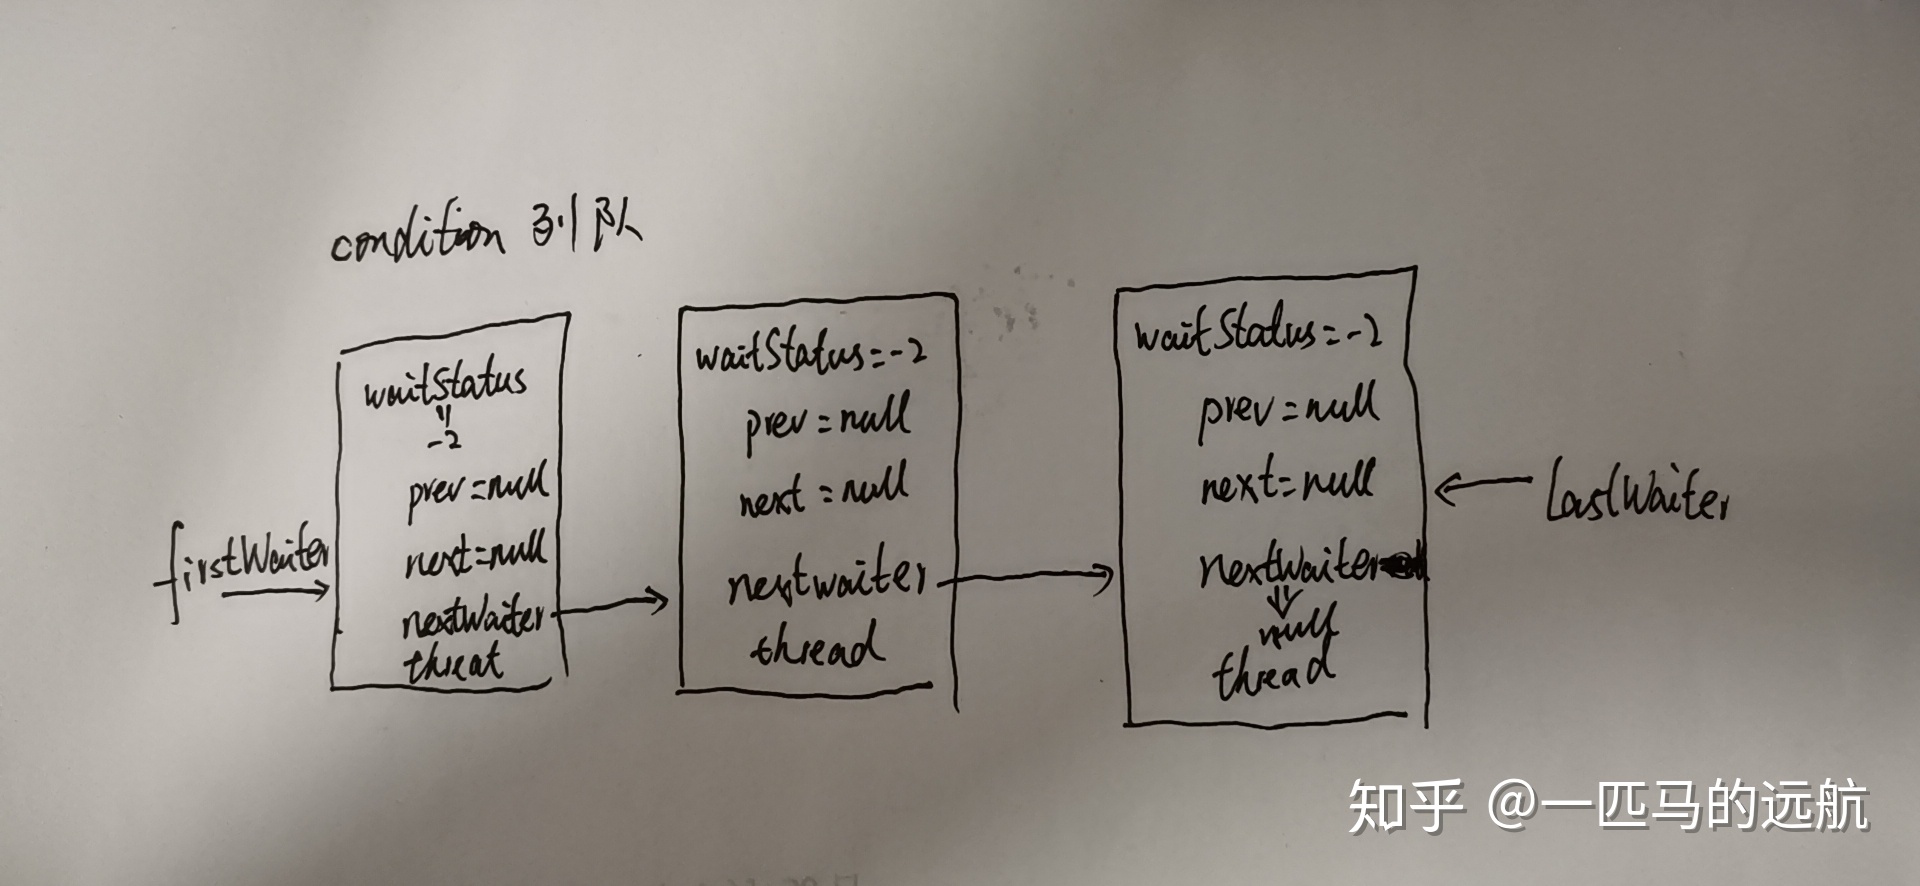 condition 列队
firstWaiter
waitStatus
=
-2
prev=null
next=null
nextWaiter
threat
waitStatus=-2
prev=null
next=null
nextwaiter
thread
waitStatus=-2
prev=null
next=null
nextWaiter
null
thread
lastWaiter
知乎 @一匹马的远航